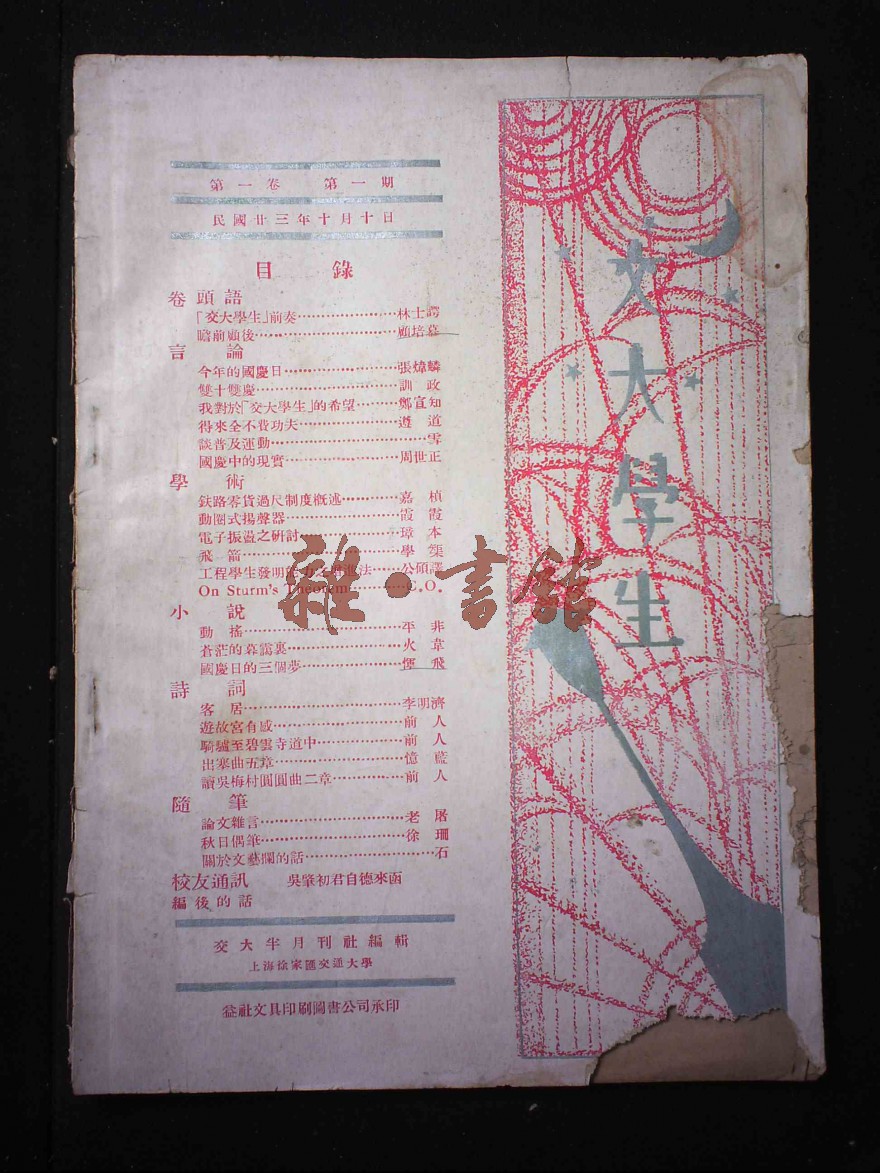 交大學生
第一卷 第一期
民國廿三年十月十日
目 錄
卷頭語
「交大學生」前奏⋯⋯林士諤
瞻前顧後⋯⋯顧培慕
言 論
今年的國慶日⋯⋯張煒麟
雙十雙慶⋯⋯訓 政
我對於「交大學生」的希望⋯⋯鄭宜知
得來全不費功夫⋯⋯遵 道
談普及運動⋯⋯雪
國慶中的現實⋯⋯周世正
學 術
鉄路零貨過尺制度概述⋯⋯嘉 楨
動圈式揚聲器⋯⋯霞 霞
電子振盪之研討⋯⋯璋 本
飛 箭⋯⋯學
工程學生發明⋯⋯公傾譯
On Sturm's Theorem⋯⋯C.O.
小 說
動 搖⋯⋯平 非
蒼茫的暮靄裏⋯⋯火 韋
國慶日的三個夢⋯⋯煙 飛
詩 詞
客 居⋯⋯李明濟
遊故宮有感⋯⋯前 人
騎驢至碧雲寺道中⋯⋯前 人
出塞曲五章⋯⋯憶 藍
讀吳梅村圓圓曲二章⋯⋯前 人
隨 筆
論文雜言⋯⋯老 屠
秋日偶筆⋯⋯徐 珊
關於文藝欄的話⋯⋯石
校友通訊 吳肇初君自德來函
編後的話
交大半月刊社編輯
上海徐家匯交通大學
益社文具印刷圖書公司承印
雜·書館